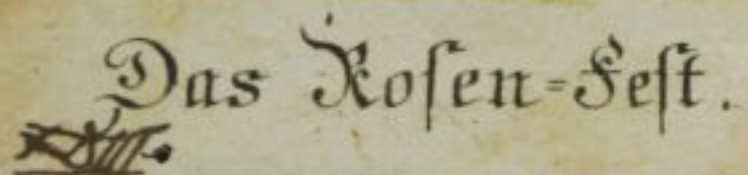 Das Rosen-Fest.